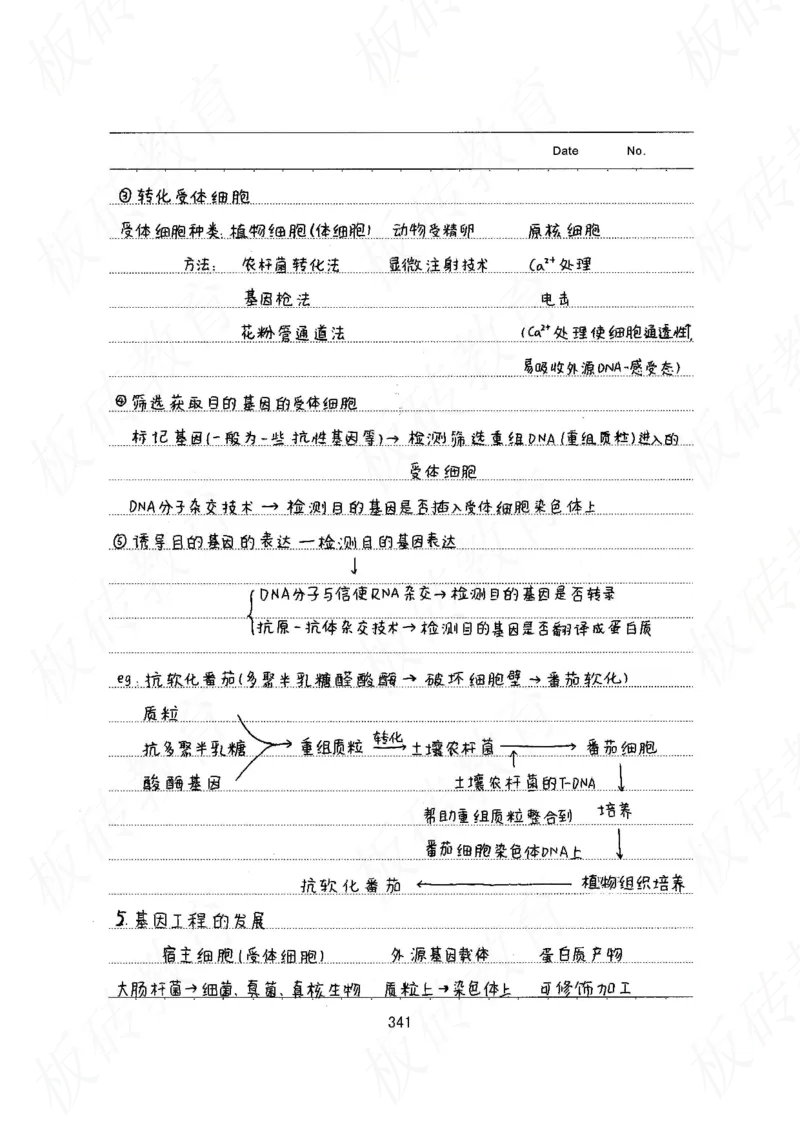 Date No.
③转化受体细胞
受体细胞种类:植物细胞(体细胞) 动物受精卵 原核细胞
方法: 农杆菌转化法 显微注射技术 Ca²⁺处理
基因枪法 电击
花粉管通道法 (Ca²⁺处理使细胞通透性↑,
易吸收外源DNA-感受态)
④筛选获取目的基因的受体细胞
标记基因(一般为一些抗性基因等)→检测筛选重组DNA(重组质粒)进入的
受体细胞
DNA分子杂交技术→检测目的基因是否插入受体细胞染色体上
⑤诱导目的基因的表达—检测目的基因表达
↓
DNA分子与信使RNA杂交→检测目的基因是否转录
抗原-抗体杂交技术→检测目的基因是否翻译成蛋白质
eg:抗软化番茄(多聚半乳糖醛酸酶→破坏细胞壁→番茄软化)
质粒
转化
抗多聚半乳糖 → 重组质粒 → 土壤农杆菌 → 番茄细胞
酸酶基因 土壤农杆菌的T-DNA
帮助重组质粒整合到 培养
番茄细胞染色体DNA上
抗软化番茄 ← 植物组织培养
5.基因工程的发展
宿主细胞(受体细胞) 外源基因载体 蛋白质产物
大肠杆菌→细菌、真菌、真核生物 质粒上→染色体上 可修饰加工
341
板砖教育